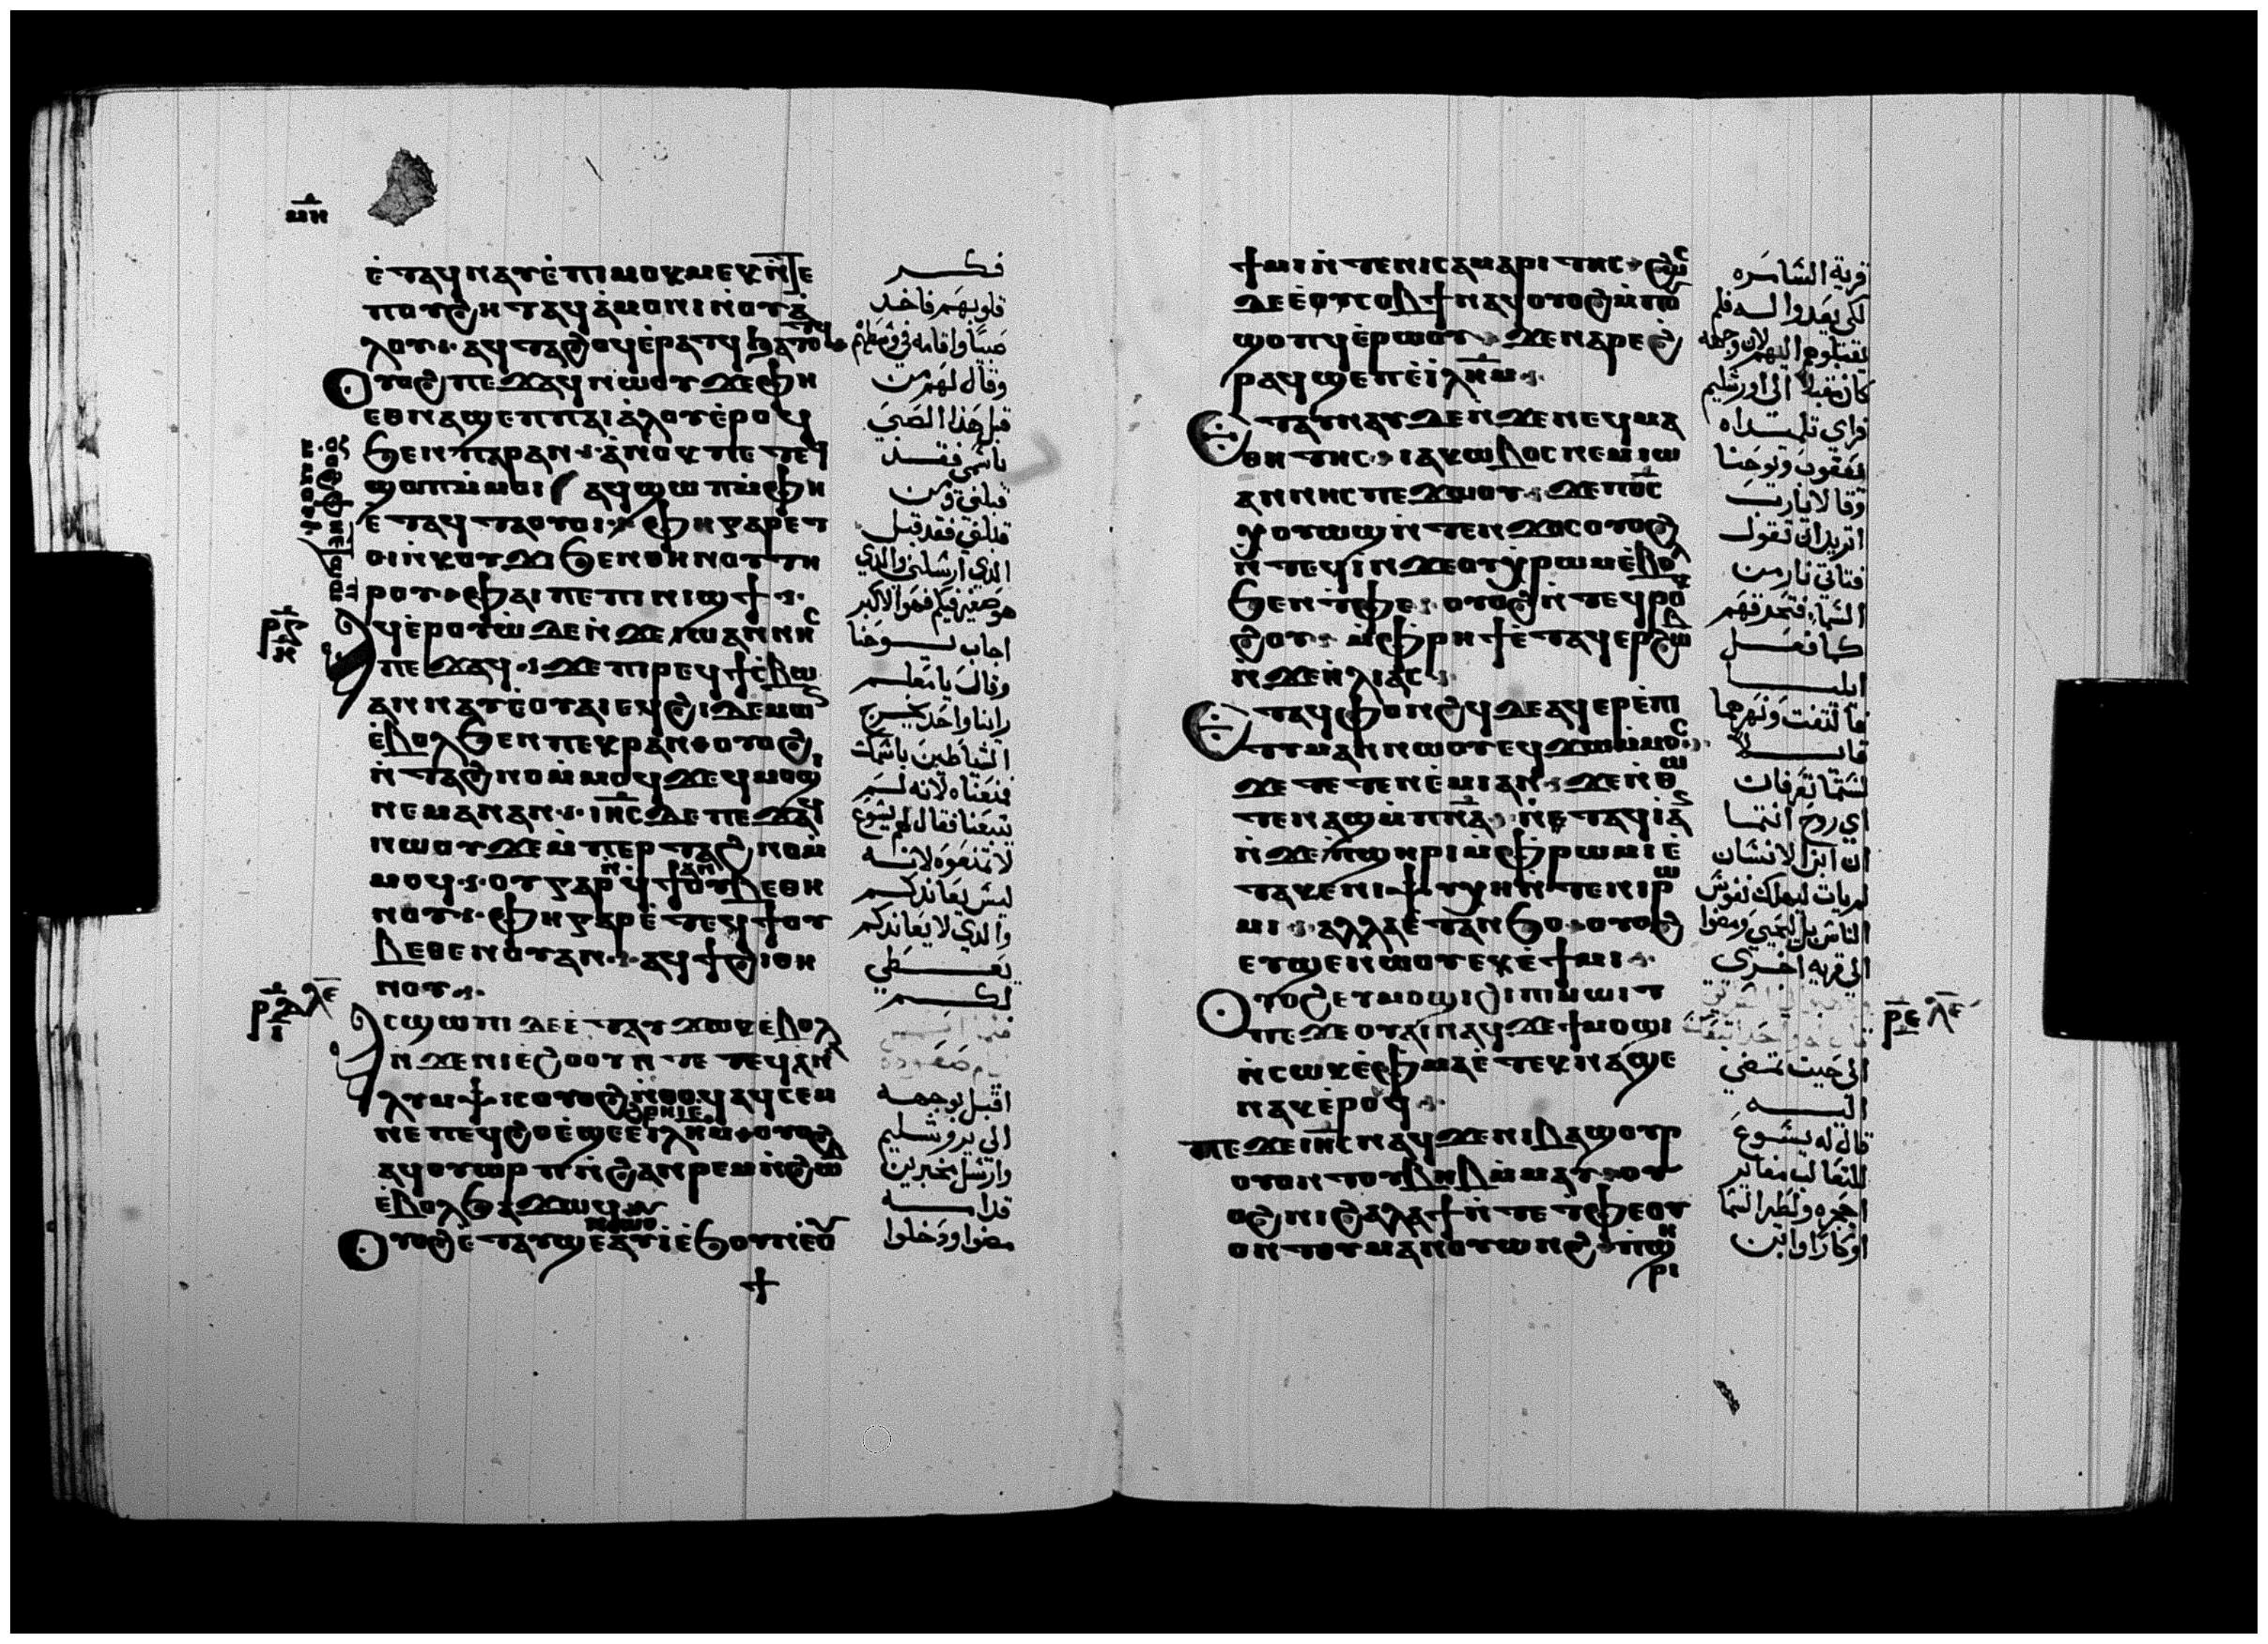 ⲙⲏ
ⲉ̇ⲧⲁϥⲛⲁⲩⲉ̇ⲡⲓⲙⲟⲕⲙⲉⲕⲛ̇ⲧⲉ
ⲡⲟⲩϩⲏⲧⲁϥⲁ̇ⲙⲟⲛⲓⲛ̇ⲟⲩⲁ̇
ⲗⲟⲩ· ⲁϥⲧⲁϩⲟϥⲉ̇ⲣⲁⲧϥϧⲁⲧⲟⲧϥ
ⲟⲩⲟϩⲡⲉϫⲁϥⲛⲱⲟⲩϫⲉⲫⲏ
ⲉⲑⲛⲁϣⲉⲡⲡⲁⲓⲁ̇ⲗⲟⲩⲉ̇ⲣⲟϥ
ϧⲉⲛⲡⲁⲣⲁⲛ· ⲁ̇ⲛⲟⲕⲡⲉⲧⲉϥ
ϣⲱⲡⲙ̇ⲙⲟⲓ ⲁϥϣⲱⲡⲙ̇ⲫⲏ
ⲉ̇ⲧⲁϥⲧⲁⲟⲩⲟⲓ· ⲫⲏⲅⲁⲣⲉⲧ
ⲟⲓⲛ̇ⲕⲟⲩϫⲓϧⲉⲛⲑⲏⲛⲟⲩⲧⲏ
ⲣⲟⲩ· ⲫⲁⲓⲡⲉⲡⲓⲛⲓϣϯ·
ⲁϥⲉ̇ⲣⲟⲩⲱ̇ⲇⲉⲛ̇ϫⲉⲓⲱⲁⲛⲛⲏⲥ
ⲡⲉϫⲁϥ· ϫⲉⲡⲓⲣⲉϥϯⲥ̇ⲃⲱ
ⲁⲛⲛⲁⲩⲉ̇ⲟⲩⲁⲓⲉϥϩⲓⲇⲉⲙⲱ
ⲉ̇ⲃⲟⲗϧⲉⲛⲡⲉⲕⲣⲁⲛ· ⲟⲩⲟϩ
ⲛ̇ⲧⲁϩⲛⲟⲙ̇ⲙⲟϥϫⲉϥⲙⲟϣⲓ
ⲛⲉⲙⲁⲛⲁⲛ· ⲓⲏ̅ⲥⲇⲉⲡⲉϫⲁϥ
ⲛⲱⲟⲩϫⲉⲙ̇ⲡⲉⲣⲧⲁϩⲛⲟⲙ̇
ⲙⲟϥ· ⲟⲩⲅⲁⲣⲛ̇ϥϯⲟⲩⲃⲉⲑⲏ
ⲛⲟⲩⲁⲛ· ⲫⲏⲅⲁⲣⲉ̇ⲧⲉϥϯⲟⲩ
ⲃⲉⲑⲉⲛⲟⲩⲁⲛ· ⲁϥϯϩⲓⲑⲏ
ⲛⲟⲩ·
ⲣ̅ⲇ ⲗ̅ⲉ
ⲁⲥϣⲱⲡⲓⲇⲉⲉ̇ⲧⲁⲩϫⲱⲕⲉ̇ⲃⲟⲗ
ⲛ̇ϫⲉⲛⲓⲉϩⲟⲟⲩⲛ̇ⲧⲉⲧⲉϥⲁⲛⲁ
ⲗⲩⲙⲯⲓⲥⲟⲩⲟϩⲛ̇ⲑⲟϥⲁϥⲥⲉⲙ
ⲛⲉⲡⲉϥϩⲟⲉ̇ϣⲉⲉ̇ⲓⲗⲏ̅ⲙ· ⲟⲩⲟϩ
ⲁϥⲟⲩⲱⲣⲡⲛ̇ϩⲁⲛⲣⲉⲙⲛ̇ϩⲱⲃ
ⲉ̇ⲃⲟⲗϧⲁϫⲱϥ
ⲟⲩⲟϩⲉ̇ⲧⲁⲩϣⲉⲁⲩⲓⲉ̇ϧⲟⲩⲛⲉ̇ⲟⲩ
فكر
قلوبهم فاخذ
صبيا واقامه في وسطهم
وقال لهم من
قبل هذا الصبي
باسمي فقد
قبلني ومن
قبلني فقد قبل
الذي ارسلني والذي
هو صغير فيكم فهو الاكبر
اجاب يوحنا
وقال يا معلم
راينا واحد يخرج
الشياطين باسمك
فمنعناه لانه لم
يتبعنا فقال لهم يسوع
لا تمنعوه لانه
ليس يعاندكم
والذي لا يعاندكم
يعطي
لكم
اقبل بوجهه
الى يروشليم
وارسل مخبرين
قدامه
مضوا ودخلوا
ϯⲙⲓⲛ̇ⲧⲉⲛⲓⲥⲁⲙⲁⲣⲓⲧⲏⲥ· ϩⲱⲥ
ⲇⲉⲉ̇ⲟⲩⲥⲟⲃϯⲛⲁϥⲟⲩⲟϩⲙ̇ⲡⲟⲩ
ϣⲟⲡϥⲉ̇ⲣⲱⲟⲩ· ϫⲉⲛⲁⲣⲉϩ
ⲣⲁϥϣⲉⲡⲉ̇ⲓⲗⲏ̅ⲙ·
ⲉⲧⲁⲩⲛⲁⲩⲇⲉⲛ̇ϫⲉⲛⲉϥⲙⲁ
ⲑⲏⲧⲏⲥ· ⲓⲁⲕⲱⲃⲟⲥⲛⲉⲙⲓⲱ
ⲁⲛⲛⲏⲥⲡⲉϫⲱⲟⲩ· ϫⲉⲡⲟ̅ⲥ
ⲭⲟⲩⲱϣⲛ̇ⲧⲉⲛϫⲟⲥⲟⲩⲟϩ
ⲛ̇ⲧⲉϥⲓ̇ⲛ̇ϫⲉⲟⲩⲭⲣⲱⲙⲉ̇ⲃⲟⲗ
ϧⲉⲛⲧ̇ⲫⲉ· ⲟⲩⲟϩⲛ̇ⲧⲉϥⲣⲟⲕ
ϩⲟⲩ· ⲙ̇ⲫⲣⲏϯⲉ̇ⲧⲁϥⲉⲣϩⲱⲃ
ⲛ̇ϫⲉⲏ̇ⲗⲓⲁⲥ·
ⲉⲧⲁϥⲫⲟⲛϩϥⲇⲉⲁϥⲉⲣⲉ̇ⲡⲓ
ⲧⲓⲙⲁⲛⲛⲱⲟⲩⲉϥϫⲱⲙ̇ⲙⲟⲥ·
ϫⲉⲧⲉⲧⲉⲛⲉ̇ⲙⲓⲁⲛ· ϫⲉⲛ̇ⲑⲱ
ⲧⲉⲛⲁϣⲙ̇ⲡⲛ̅ⲁ· ⲛ̇ⲉⲧⲁϥⲓ̇ⲁⲛ
ⲛ̇ϫⲉⲡ̇ϣⲏⲣⲓⲙ̇ⲫⲣⲱⲙⲓⲉ̇
ⲧⲁⲕⲉⲛⲓⲯⲩⲭⲏⲛ̇ⲧⲉⲛⲓⲣⲱ
ⲙⲓ· ⲁⲗⲗⲁⲉ̇ⲧⲁⲛϧⲟ· ⲟⲩⲟϩ
ⲉⲩϣⲉⲛⲱⲟⲩⲉ̇ⲕⲉϯⲙⲓ·
ⲟⲩⲟϩⲉⲩⲙⲟϣⲓϩⲓⲡⲓⲙⲱⲓⲧ
ⲡⲉϫⲉⲟⲩⲁⲓⲛⲁϥϫⲉϯⲙⲟϣⲓ
ⲛ̇ⲥⲱⲕⲉ̇ⲫⲙⲁⲉ̇ⲧⲉⲕⲛⲁϣⲉ
ⲛⲁⲕⲉ̇ⲣⲟϥ·
ⲡⲉϫⲉⲓⲏ̅ⲥⲛⲁϥϫⲉⲛⲓⲃⲁϣⲟⲩⲣ
ⲟⲩⲟⲛⲧⲟⲩⲃⲏⲃⲙ̇ⲙⲁⲩ· ⲟⲩ
ⲟϩⲛⲓϩⲁⲗⲁϯⲛ̇ⲧⲉⲧ̇ⲫⲉⲟⲩ
ⲟⲛⲧⲟⲩⲙⲁⲛⲟⲩⲱϩ· ⲡ̇ϣⲏ
ⲣⲓ
قرية السامره
لكي يعدوا له فلم
يقبلوه اليهم لان وجهه
كان مقبلا الى اورشليم
فراي تلميذاه
يعقوب ويوحنا
وقالا يارب
اتريد ان تقول
فتاتي نار من
السما فتحرقهم
كما فعل
ايليا
فالتفت ونهرهما
قايلا
لستما تعرفان
اي روح انتما
ان ابن الانسان
لم يات ليهلك نفوس
الناس بل ليحيي ومضوا
الى قريه اخرى
الى حيث تمضي
اليه
قال له يسوع
للثعالب مغاير
احجره ولطير السما
اوكارا وابن
ⲣ̅ⲉ ⲗ̅ⲉ